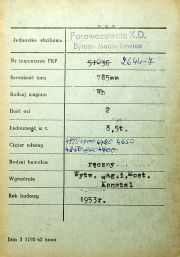 P.K.P.
Jednostka służbowa
Parowozownia K.D.
Bytom-Maciejkowice
Nr inwentarza PKP
2644-7
Szerokość toru
785mm
Rodzaj wagonu
Wh
Ilość osi
2
Ładowność w t.
8,5t.
Ciężar własny
4650
4400
Rodzaj hamulca
ręczny
Wytwórnia
Wytw. Wag. i Most.
Konstal
Rok budowy
1953r.